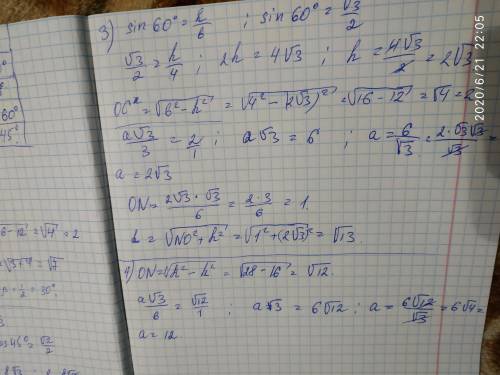 3) sin 60° = h/6 ; sin 60° = √3/2
√3/2 = h/4 ; 2h = 4√3 ; h = 4√3/2 = 2√3
= √(6²-h²) = √(4²-(2√3)²) = √(16-12) = √4 = 2
a√3/3 = 2/1 ; a√3 = 6 ; a = 6/√3 = 2·√3√3/√3 =
a = 2√3
ON = 2√3·√3/6 = 2·3/6 = 1
= √(NO²+h²) = √(1²+(2√3)²) = √13
ON = √(h²-h²) = √(28-16) = √12
a√3/6 = √12/1 ; a√3 = 6√12 ; a = 6√12/√3 = 6√4 =
a = 12
60°
45°
6-12 = √4 = 2
= √7
= 1/2 = 30°
45° = √2/2
2020/6/21 22:05